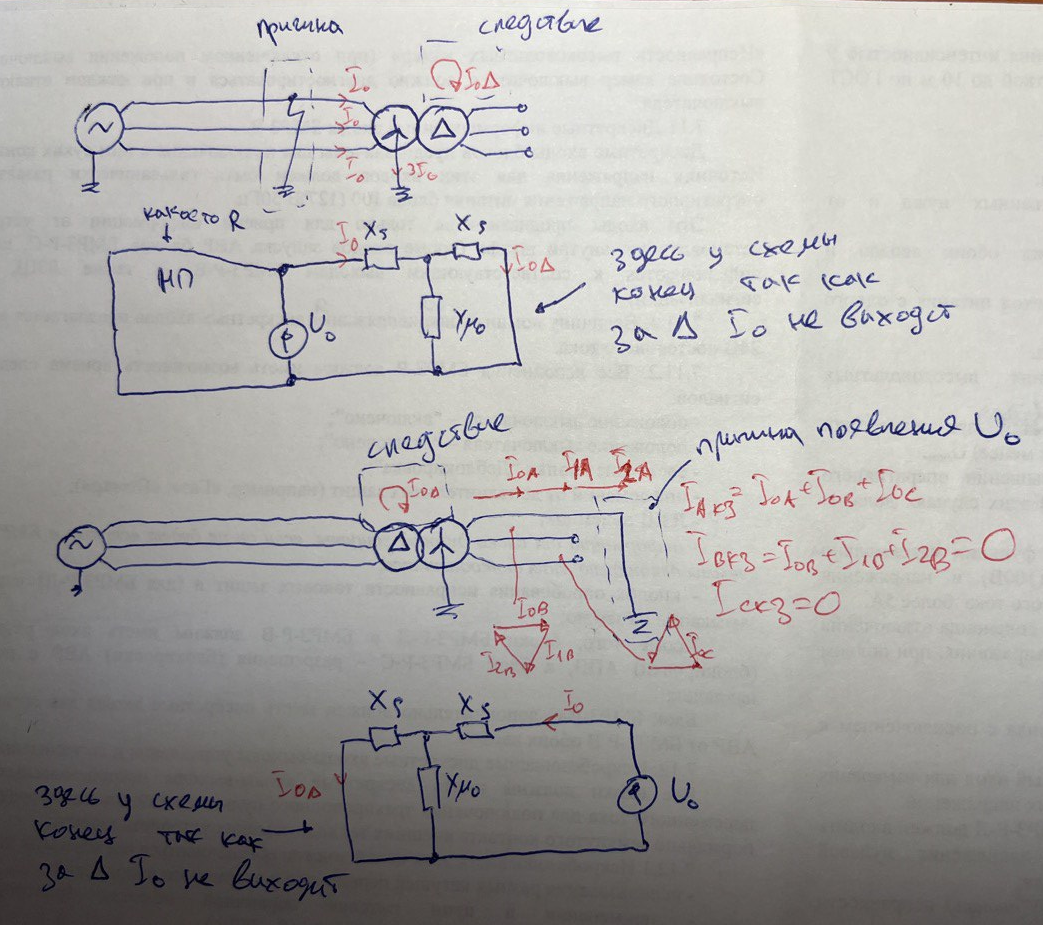 причина
следствие
I₀
I₀Δ
I₀
I₀
3I₀
Δ
какое то R
I₀
Xs
Xs
I₀Δ
НП
U₀
Xμ₀
здесь у схемы
конец так как
за Δ I₀ не выходит
следствие
причина появления U₀
I₀Δ
I₀A I₁A I₂A
Δ
IАкз = I₀A + I₀B + I₀C
IВкз = I₀B + I₁B + I₂B = 0
IСкз = 0
I₀B
I₂B
I₁B
Xs
Xs
I₀
I₀Δ
Xμ₀
U₀
здесь у схемы
конец так как
за Δ I₀ не выходит